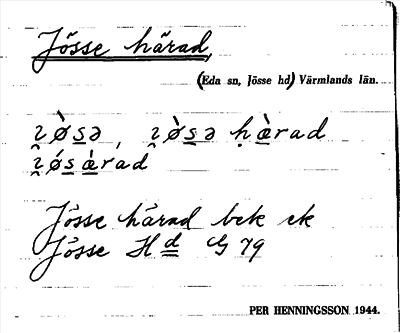 Jösse härad,
(Eda sn, Jösse hd) Värmlands län.
ʅø̀sə, ʅø̀sə hæ̀rad
ʅǿsæ̀rad
Jösse härad bek ek
Jösse Hd G 79
PER HENNINGSSON 1944.